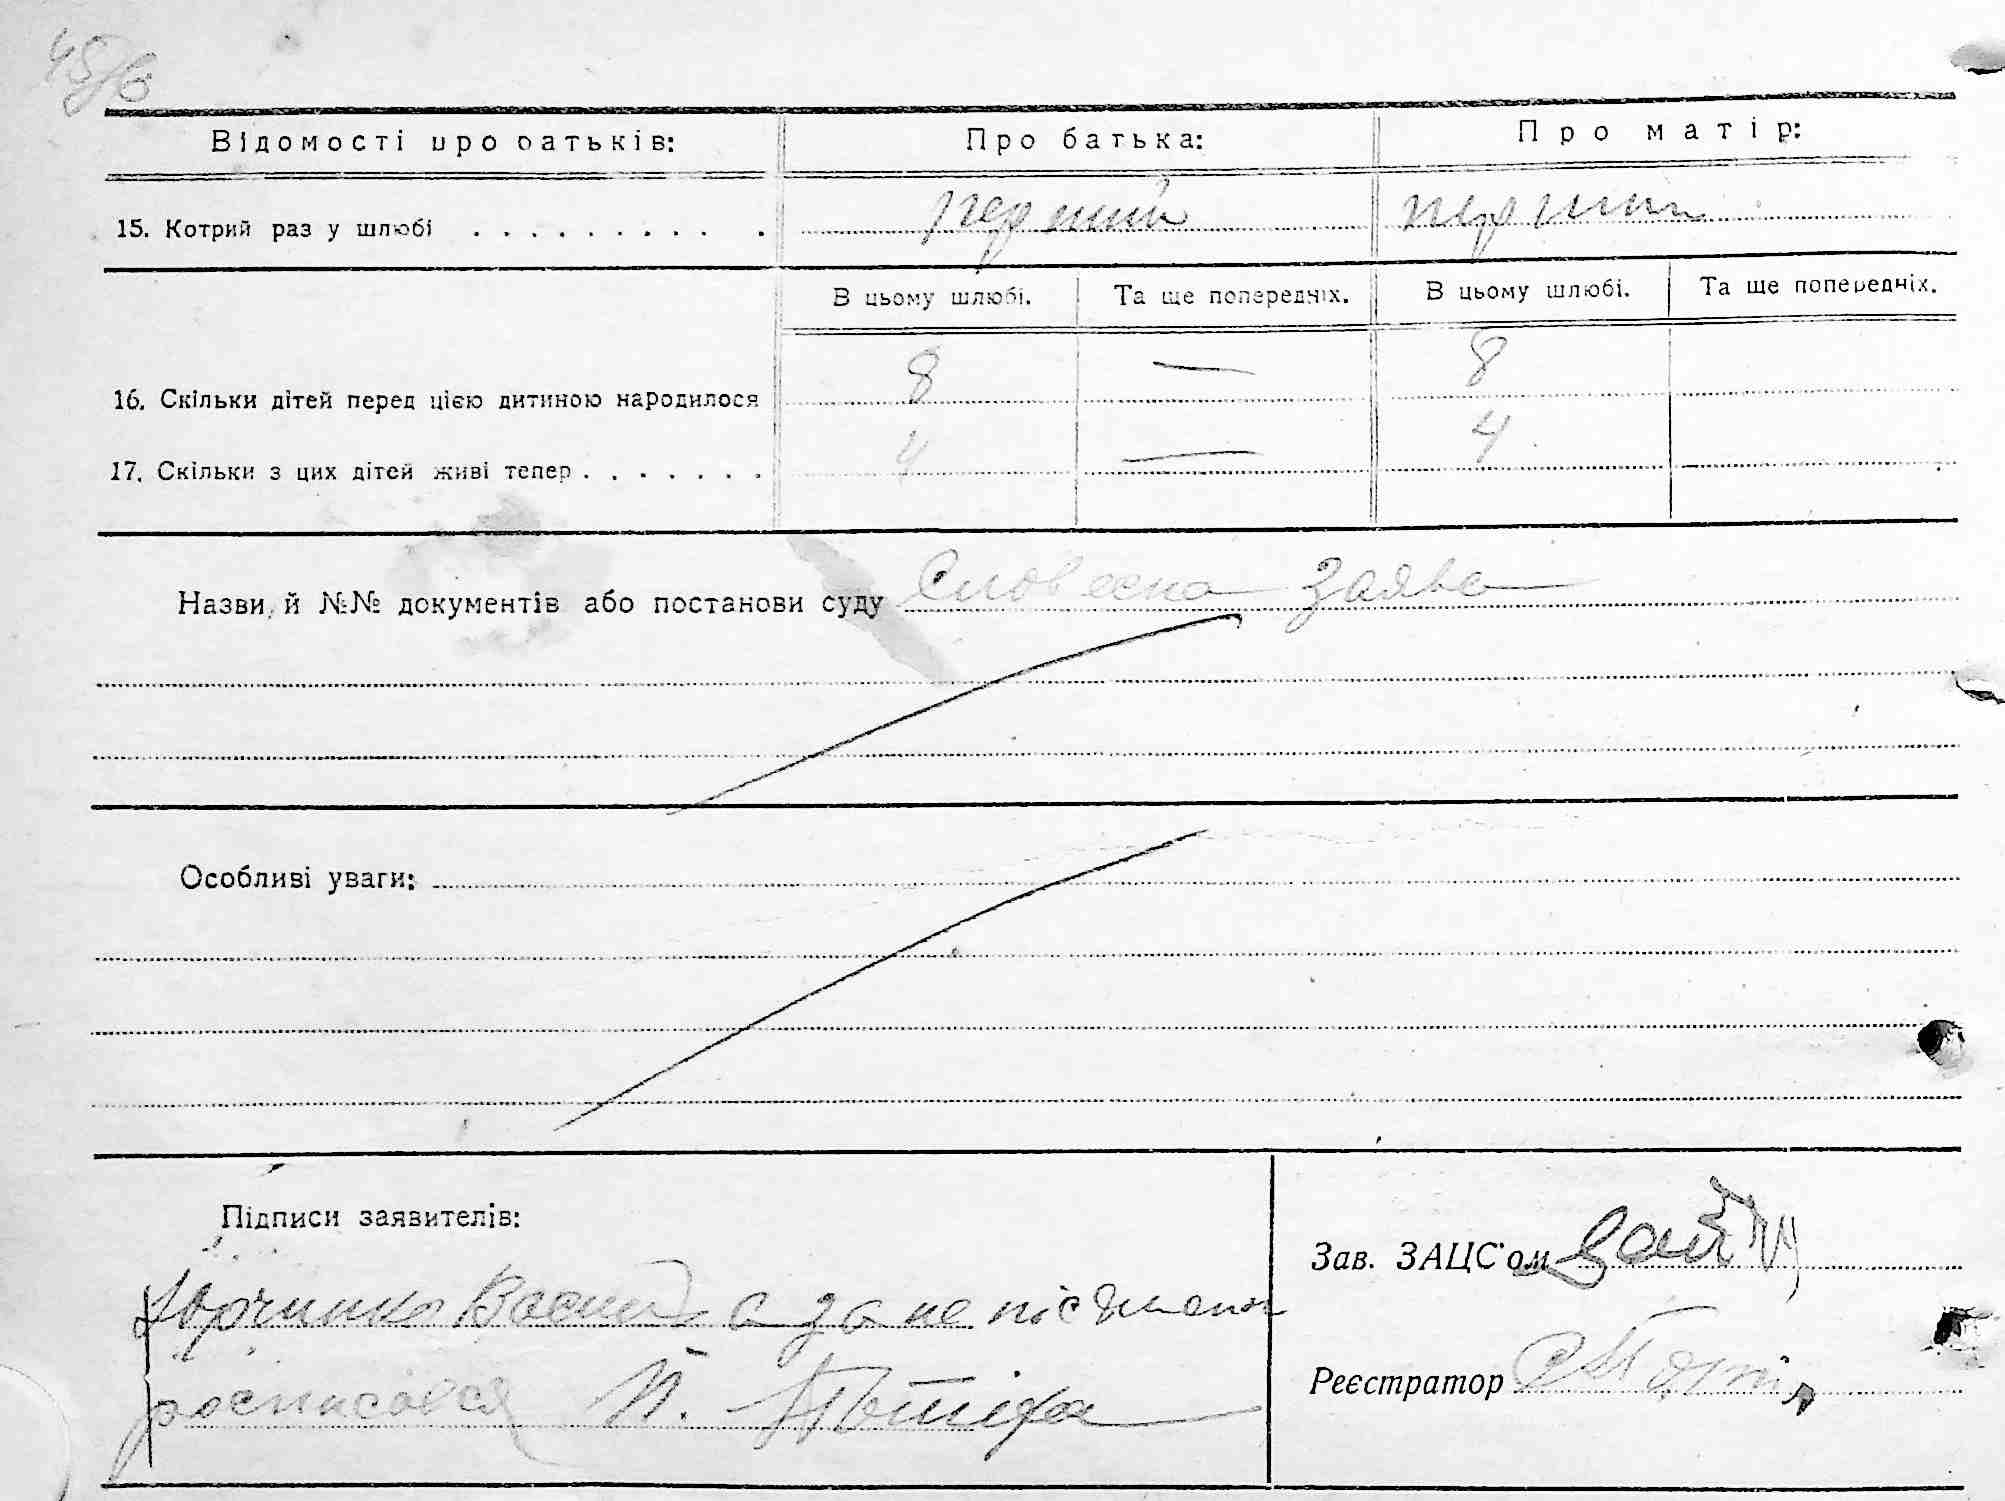 45/в
Відомості про батьків: Про батька: Про матір:
15. Котрий раз у шлюбі . . . . . . . . . . перший перший
В цьому шлюбі. Та ще попередніх. В цьому шлюбі. Та ще попередніх.
16. Скільки дітей перед цією дитиною народилося 8 — 8
17. Скільки з цих дітей живі тепер . . . . . . . 4 — 4
Назви й №№ документів або постанови суду Словесна заява
Особливі уваги:
Підписи заявителів:
Зав. ЗАЦС'ом
Юрчинко а за не
Реєстратор
росписався П.